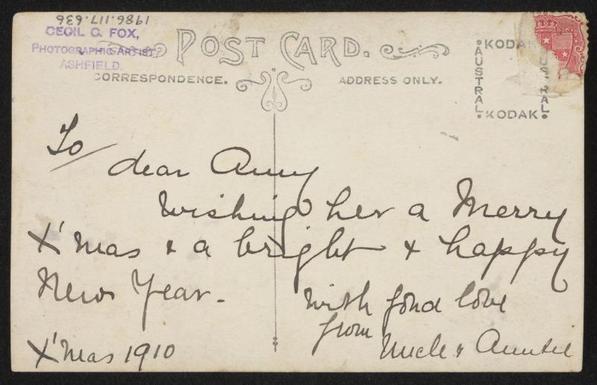 1986.117.636
CECIL C. FOX,
PHOTOGRAPHIC ARTIST,
ASHFIELD.
POST CARD.
CORRESPONDENCE. ADDRESS ONLY.
KODAK
AUSTRAL
AUSTRAL
KODAK
To
dear Anny
Wishing her a Merry
X'mas & a bright & happy
New Year.
With fond love
from
Uncle & Auntie
X'mas 1910